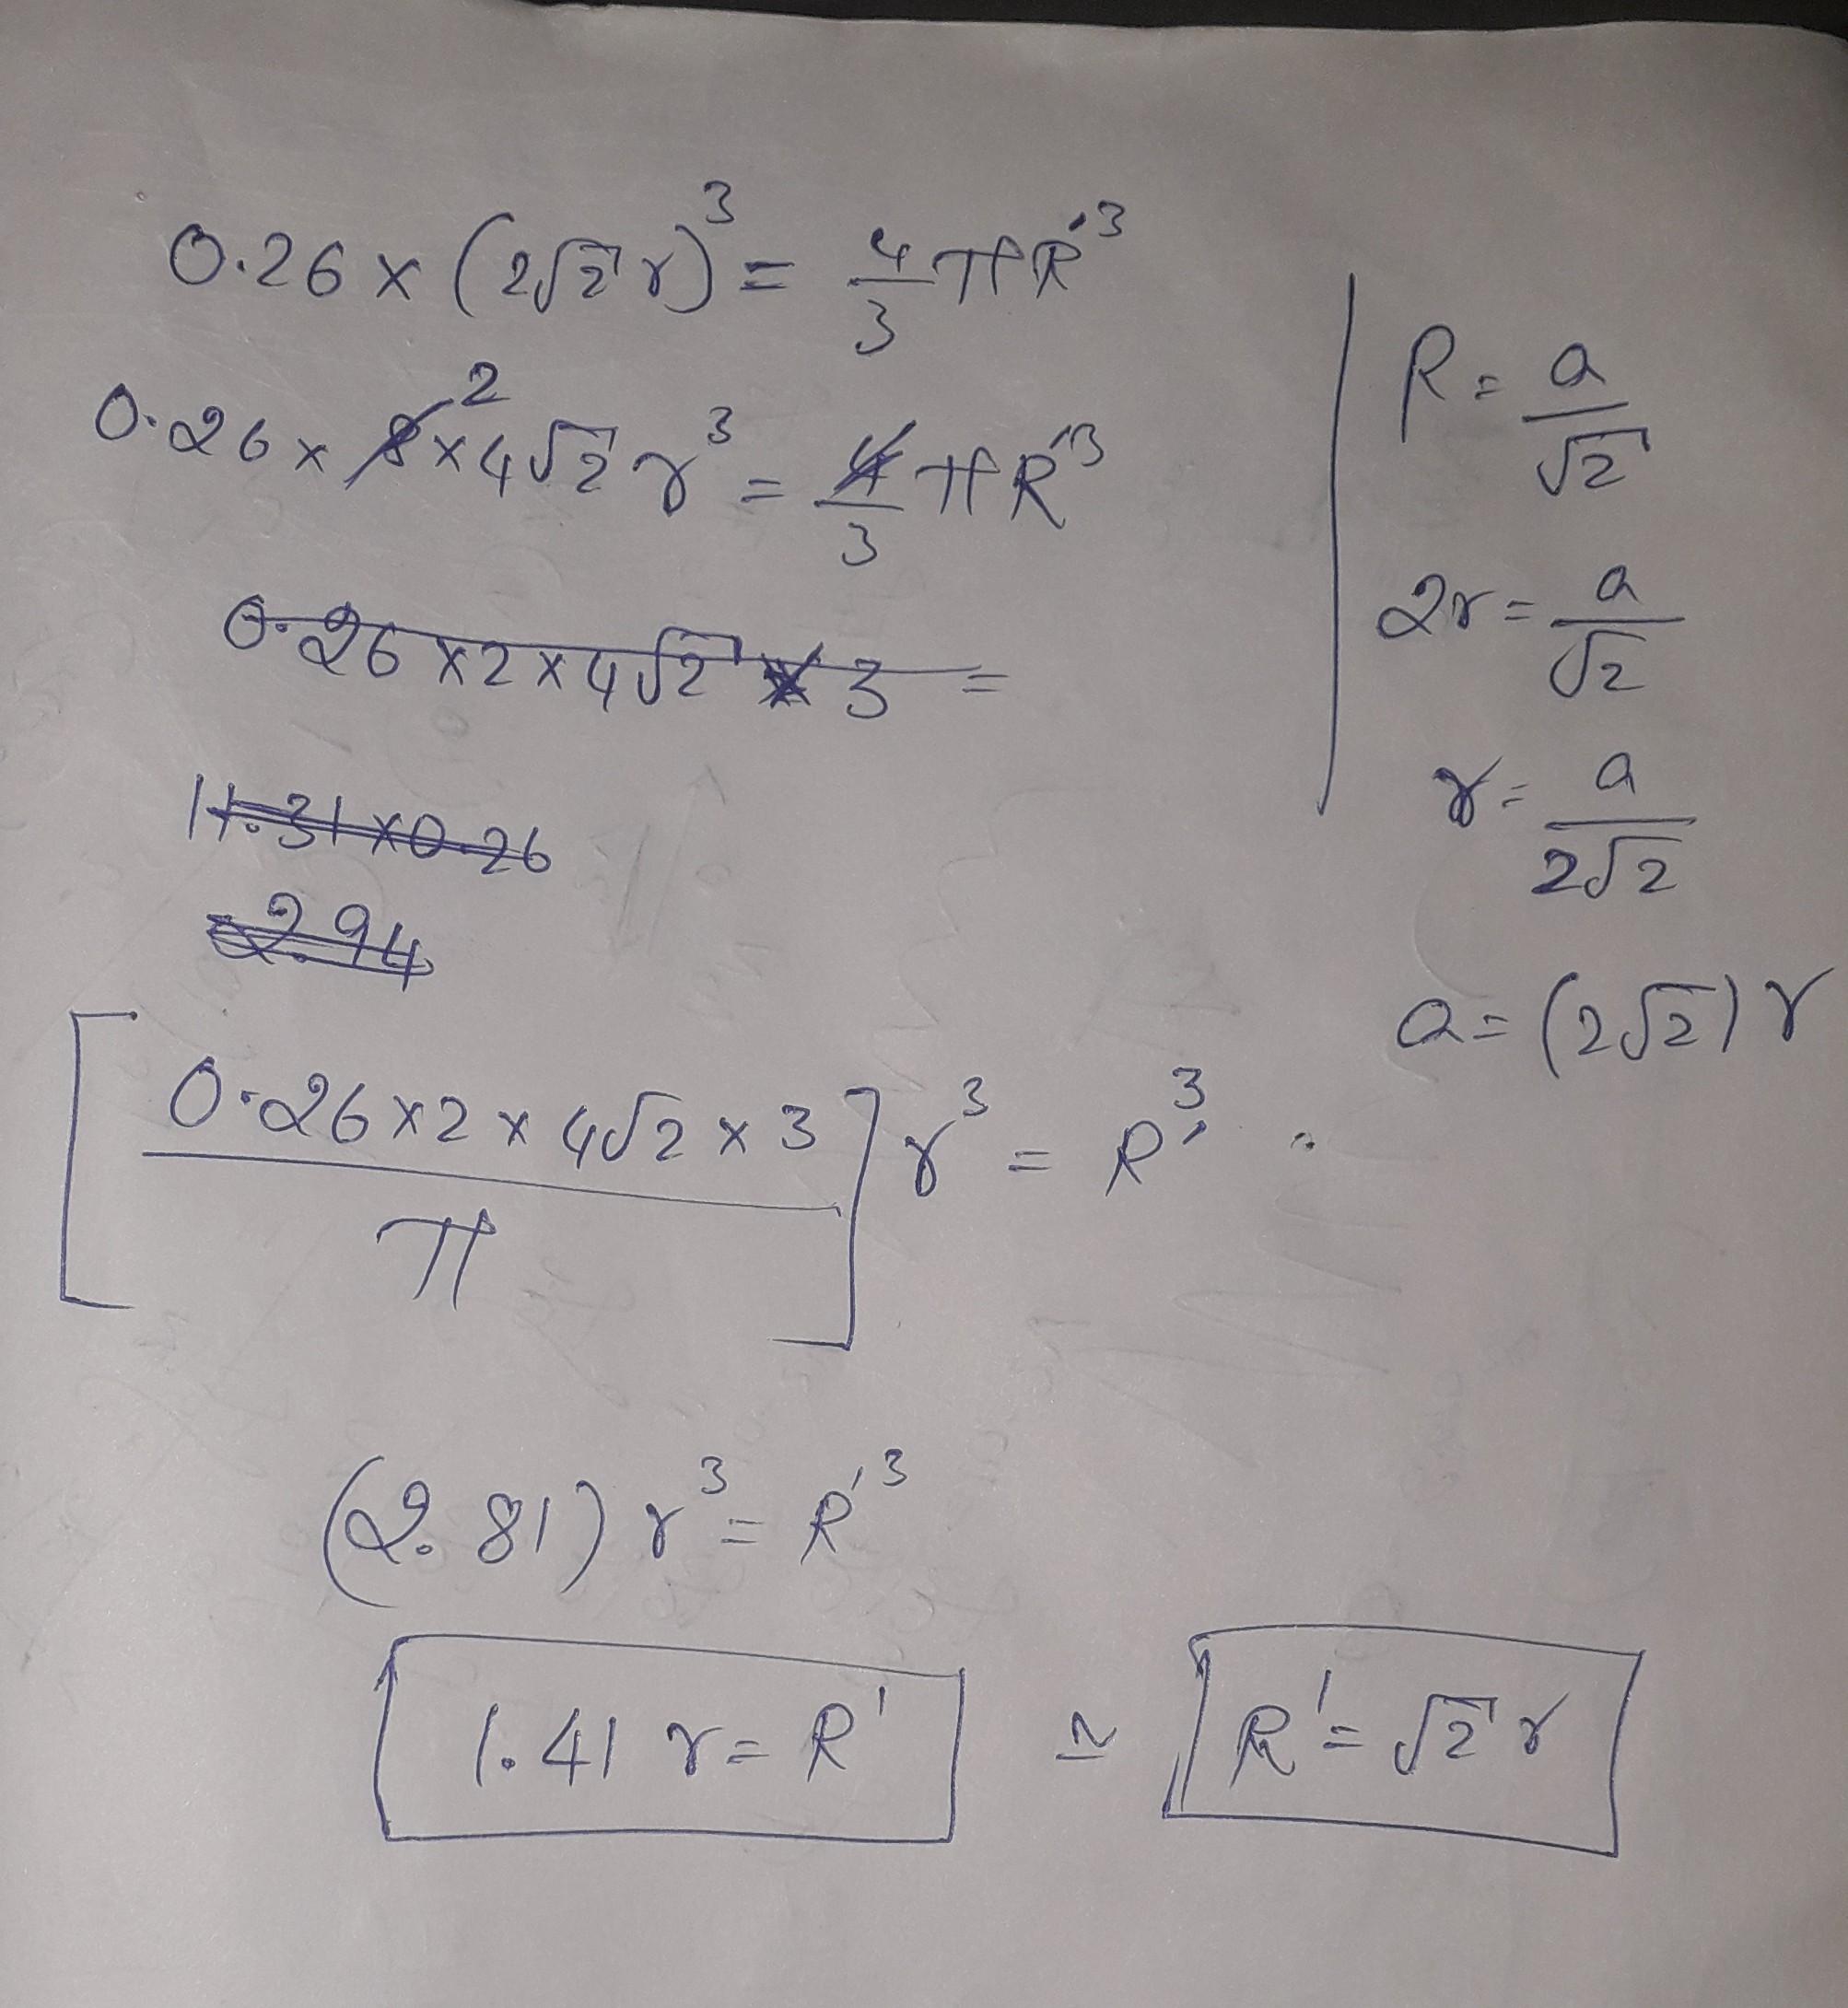 0.26 × (2√2 r)³ = 4/3 πR'³
0.26 × 8² × 4√2 r³ = 4/3 πR'³
0.26 × 2 × 4√2 × 3 =
11.31 × 0.26
= 2.94
[0.26 × 2 × 4√2 × 3 / π] r³ = R'³
(2.81) r³ = R'³
1.41 r = R' ≃ R' = √2 r
R = a/√2
2r = a/√2
r = a/2√2
a = (2√2) r